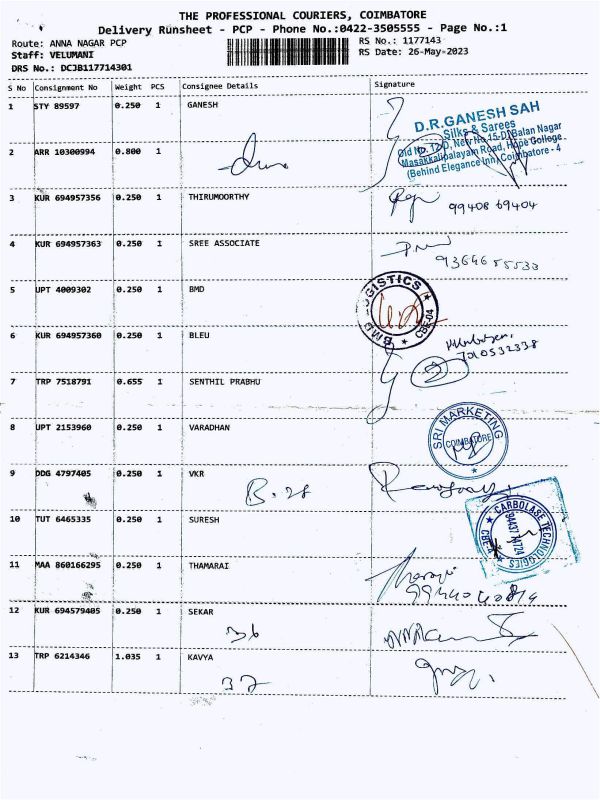 THE PROFESSIONAL COURIERS, COIMBATORE
Delivery Runsheet - PCP - Phone No.:0422-3505555 - Page No.:1
Route: ANNA NAGAR PCP RS No.: 1177143
Staff: VELUMANI RS Date: 26-May-2023
DRS No.: DCJB117714301
S No Consignment No Weight PCS Consignee Details Signature
1 STY 89597 0.250 1 GANESH
D.R.GANESH SAH
Silks & Sarees
Old No. 12-D, New No 15-D, Balan Nagar
Masakkalipalayam Road, Hope College
(Behind Elegance Inn) Coimbatore - 4
2 ARR 10300994 0.800 1
3 KUR 694957356 0.250 1 THIRUMOORTHY
99408 69404
4 KUR 694957363 0.250 1 SREE ASSOCIATE
9364655533
5 UPT 4009302 0.250 1 BMD
BMD LOGISTICS CBE-04
6 KUR 694957360 0.250 1 BLEU
7010532338
2
7 TRP 7518791 0.655 1 SENTHIL PRABHU
8 UPT 2153960 0.250 1 VARADHAN
SRI MARKETING COIMBATORE
9 DDG 4797405 0.250 1 VKR
B.28
10 TUT 6465335 0.250 1 SURESH
CARBOLASE TECHNOLOGIES
11 MAA 860166295 0.250 1 THAMARAI
12 KUR 694579405 0.250 1 SEKAR
36
13 TRP 6214346 1.035 1 KAVYA
37